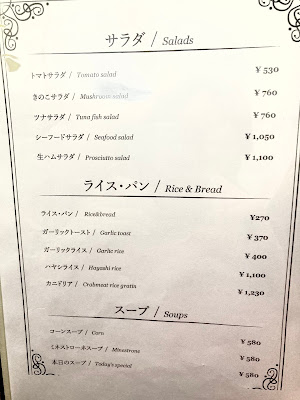 サラダ / Salads
トマトサラダ / Tomato salad ¥ 530
きのこサラダ / Mushroom salad ¥ 760
ツナサラダ / Tuna fish salad ¥ 760
シーフードサラダ / Seafood salad ¥ 1,050
生ハムサラダ / Prosciutto salad ¥ 1,100
ライス・パン / Rice & Bread
ライス・パン / Rice&bread ¥270
ガーリックトースト / Garlic toast ¥ 370
ガーリックライス / Garlic rice ¥ 400
ハヤシライス / Hayashi rice ¥ 1,100
カニドリア / Crabmeat rice gratin ¥ 1,230
スープ / Soups
コーンスープ / Corn ¥ 580
ミネストローネスープ / Minestrone ¥ 580
本日のスープ / Today's special ¥ 580